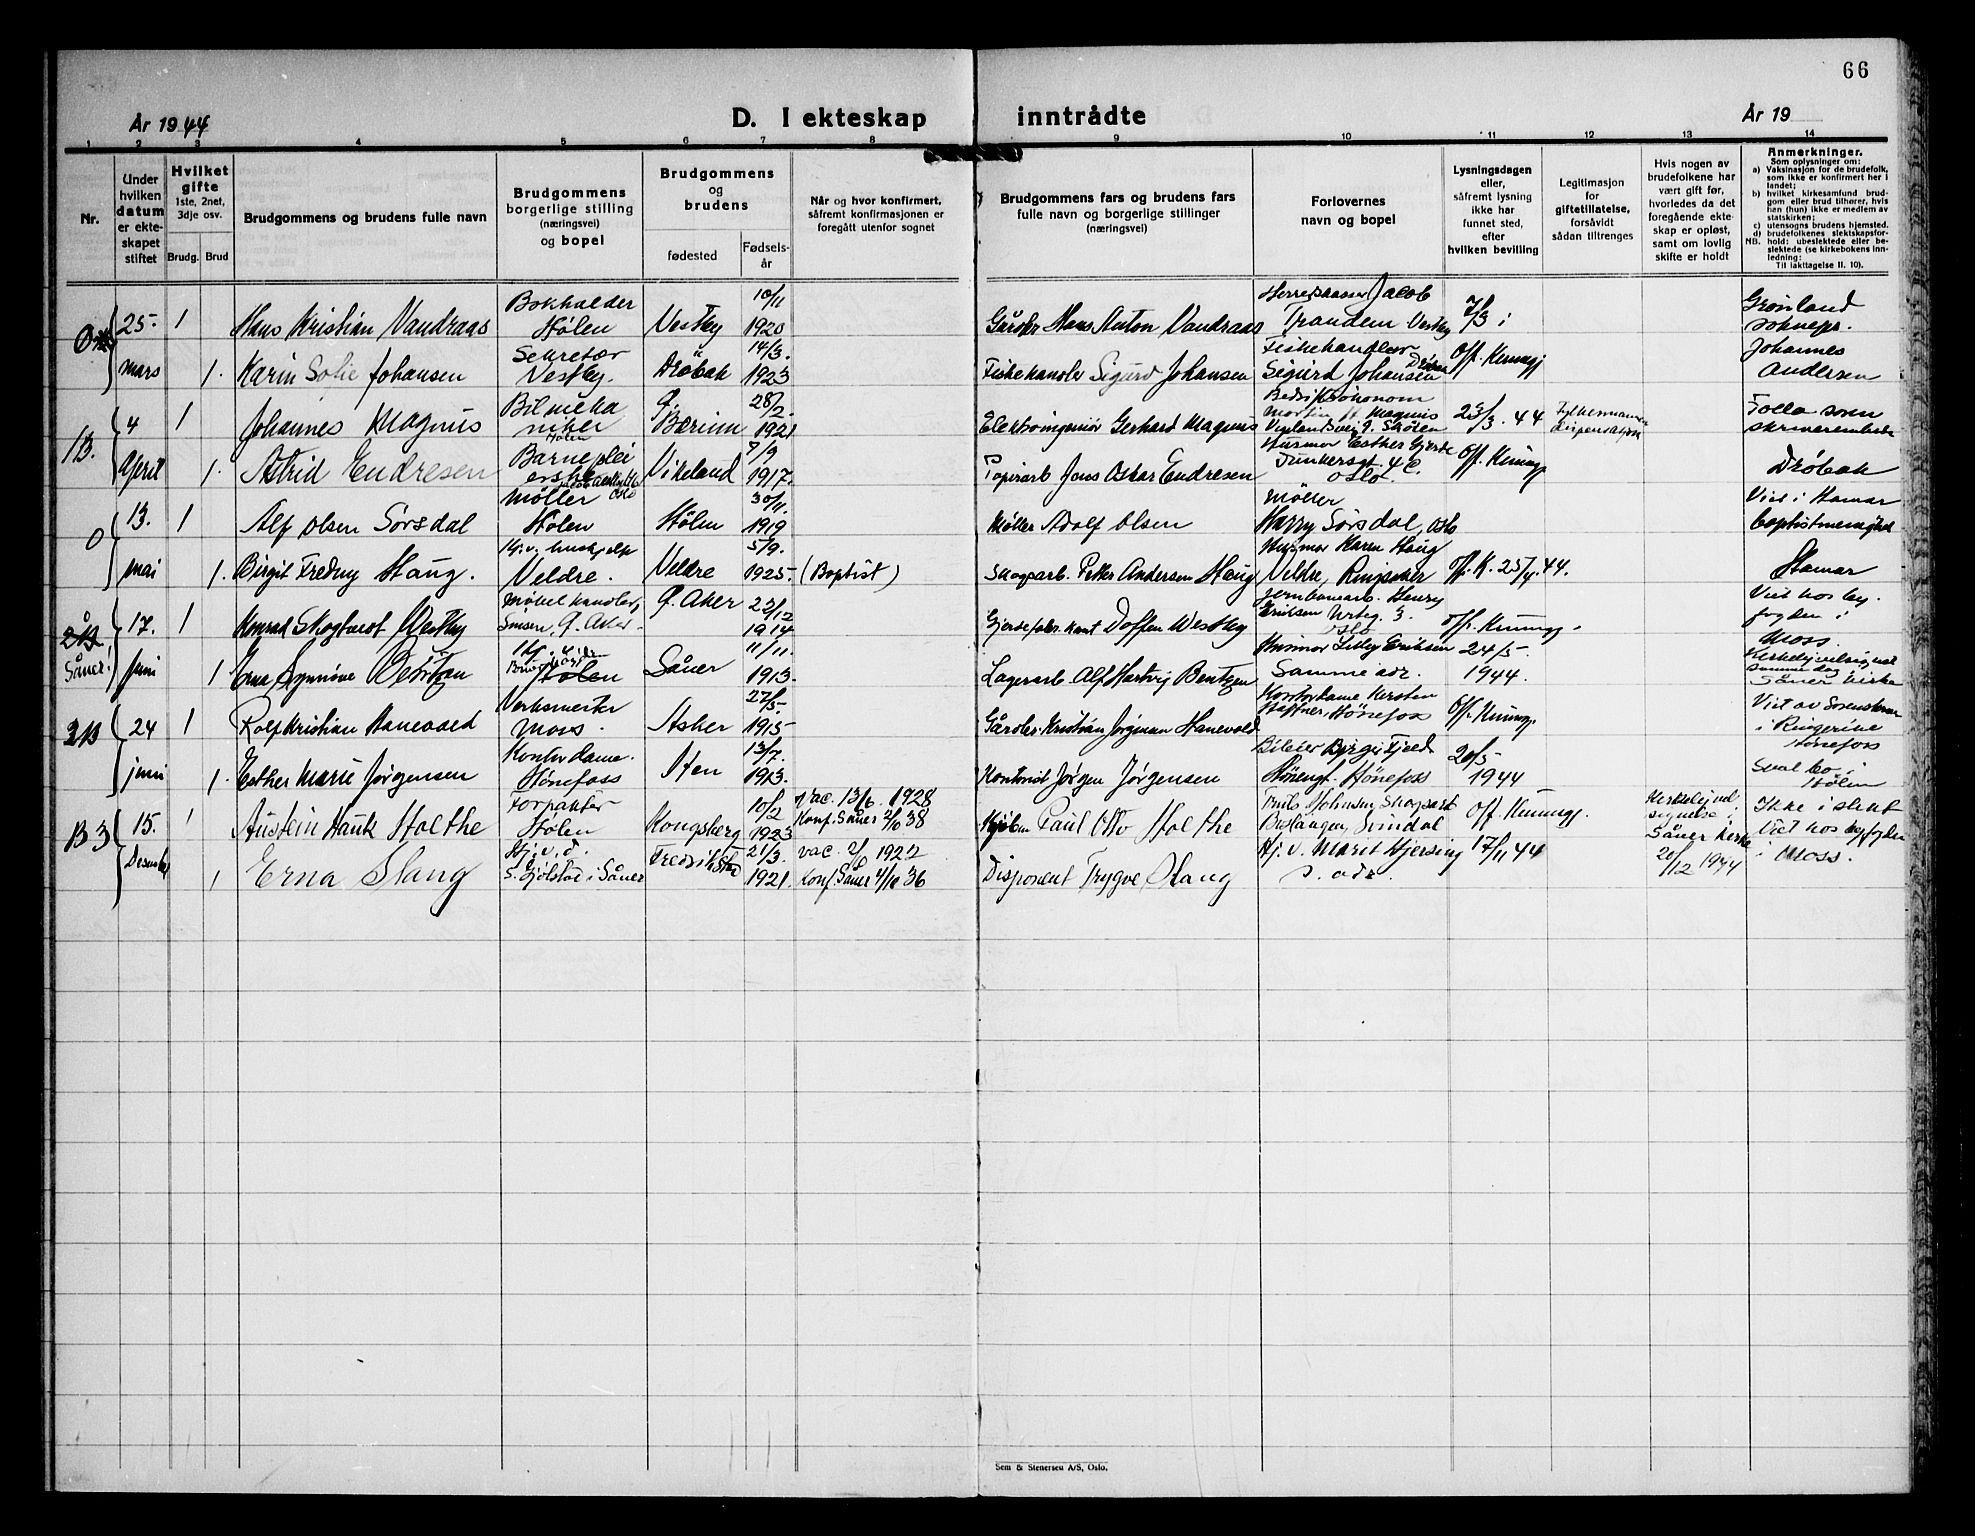 66
År 1944
D. I ekteskap inntrådte
År 19
1 2 3 4 5 6 7 8 9 10 11 12 13 14
Nr.
Under hvilken datum er ekteskapet stiftet
Hvilket gifte 1ste, 2net, 3dje osv.
Brudg. Brud
Brudgommens og brudens fulle navn
Brudgommens borgerlige stilling (næringsvei) og bopel
Brudgommens og brudens
fødested
Fødselsår
Når og hvor konfirmert, såfremt konfirmasjonen er foregått utenfor sognet
Brudgommens fars og brudens fars fulle navn og borgerlige stillinger (næringsvei)
Forlovernes navn og bopel
Lysningsdagen eller, såfremt lysning ikke har funnet sted, efter hvilken bevilling
Legitimasjon for giftetillatelse, forsåvidt sådan tiltrenges
Hvis nogen av brudefolkene har vært gift før, hvorledes da det foregående ekteskap er opløst, samt om lovlig skifte er holdt
Anmerkninger.
Som oplysninger om:
a) Vaksinasjon for de brudefolk, som ikke er konfirmert her i landet;
b) hvilket kirkesamfund brudgom eller brud tilhører, hvis han (hun) ikke er medlem av statskirken;
c) utensogns brudens hjemsted.
d) brudefolkenes slektskapsforhold: ubeslektede eller beslektede (se kirkebokens innledning:
NB. Til iakttagelse II. 10).
25. 1 Hans Kristian Vandraas Bokholder Hølen Vestby 10/11 1920 Gårdbr. Hans Anton Vandraas Jacob Trandem Vestby 7/3 i Grønland sognepr.
mars 1. Karin Sofie Johansen Sekretær Vestby. Drøbak 14/3. 1923 Fiskehandler Sigurd Johansen Fiskehandler Sigurd Johansen Drøbak Off. Kunngj Johannes Andersen
1B. 4 1 Johannes Magnus Bilmekaniker Hølen Ø. Bærum 28/2. 1921 Elektroingeniør Gerhard Magnus Bedriftsøkonom Morten H Magnus 23/3. 44 Fylkesmannen dispensasjon Follo soren skriverembede
April 1. Astrid Endresen Barnepleierske Oslo Vikeland 9/9 1917. Papirarb Jens Oskar Endresen Husmor Esther Gjerde Junkersgt. 4 C. Oslo Off. Kunngj. Drøbak
0 13. 1 Alf Olsen Sørsdal Møller Hølen Hølen 30/11. 1919 Møller Adolf Olsen Møller Harry Sørsdal, Oslo Viet i Hamar baptistmenighed
mai 1. Birgit Fredny Haug. Veldre. Veldre 5/9. 1925. (Baptist) Skogsarb. Petter Andersen Haug Husmor Karen Haug Veldre, Ringsaker off. K. 25/4. 44. Hamar
2B Såner. 17. 1 Konrad Skogtvedt Westby Møbelhandler, Sinsen, Ø. Aker. Ø. Aker 22/12 1914 Doffen Westby Jernbanearb. Henry Eriksen Oslo off. Kunngj. Viet hos byfogden i Moss.
juni 1 Erna Synnøve Bentzen Hølen Såner 11/11. 1913. Lagerarb. Alf Hartvig Bentzen Husmor Lilly Eriksen Samme adr. 24/5. 1944. Kirkelig velsignet samme dag Såner kirke
24 1 Rolf Kristian Hanevold Verksmester Moss. Asker 27/5. 1915 Gårdbr. Kristian Jørginus Hanevold Kontordame Kirsten Høffner, Hønefoss Off. Kunngj. Viet av Sorenskriver i Ringerike Hønefoss
juni 1. Esther Marie Jørgensen Kontordame. Hønefoss 13/7. 1913. Kontorist Jørgen Jørgensen Bileier Birger Fjeld Hønengt. Hønefoss 20/5 1944 Skal bo i Hølen
B3 15. 1 Austein Hauk Holthe Forpakter Hølen Kongsberg 10/2 1923 Vac. 13/6. 1928 Konf. Såner 2/10 38 Paul Otto Holthe Off Kunngj. Kirkelig velsignelse i Såner kirke 20/12 1944 Ikke i slekt Viet hos byfogden i Moss.
Desember 1 Erna Slang Hj. v. d. S. Gjølstad i Såner Fredrikstad 21/3. 1921. vac. 1922 Konf. Såner 4/10 36 Disponent Trygve Slang Hj. v. Marit Hjersing s. adr. 17/11 44
Sem & Stenersen A/S, Oslo.